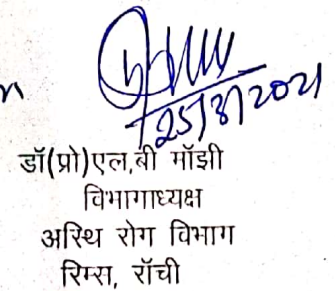 25/8/2021
डॉ(प्रो)एल,बी मॉझी
विभागाध्यक्ष
अस्थि रोग विभाग
रिम्स, रॉची